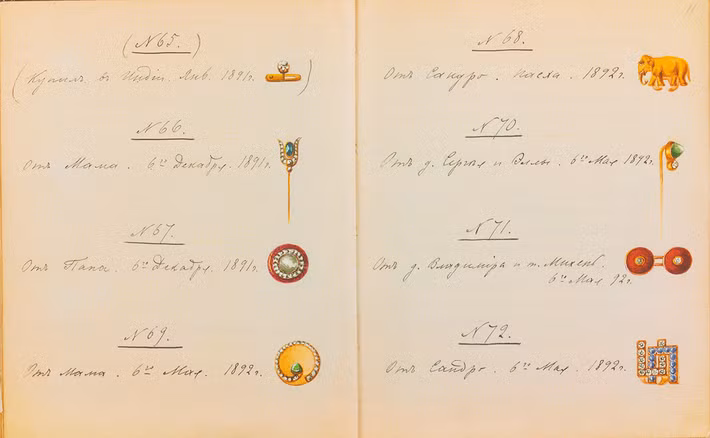 (№65.)
(Купилъ въ Индіи. Янв. 1891г.)
№66.
Отъ Мама. 6го Декабря. 1891г.
№67.
Отъ Папа. 6го Декабря. 1891г.
№69.
Отъ Мама. 6го Мая. 1892г.
11
№68.
Отъ Сандро. Пасха. 1892г.
№70.
Отъ д. Сергѣя и Эллы. 6го Мая 1892г.
№71.
Отъ д. Владиміра и т. Михень.
6го Мая 92г.
№72.
Отъ Сандро. 6го Мая. 1892г.